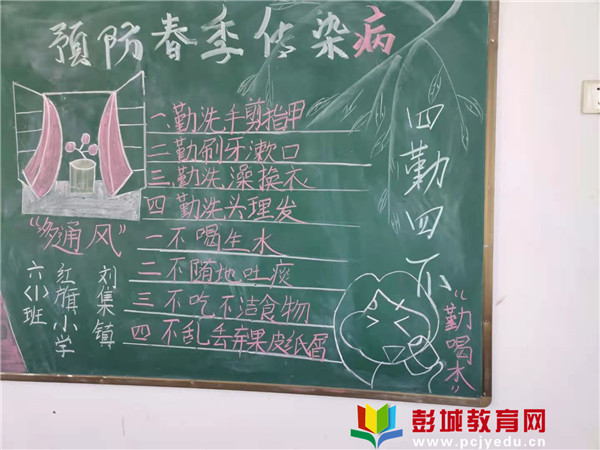 预防春季传染病
一勤洗手剪指甲
二勤刷牙漱口
三勤洗澡换衣
四勤洗头理发
一不喝生水
二不随地吐痰
三不吃不洁食物
四不乱丢弃果皮纸屑
四勤四不
"多通风"
"勤喝水"
刘集镇
红旗小学
六(1)班
彭城教育网
www.pcjyedu.cn